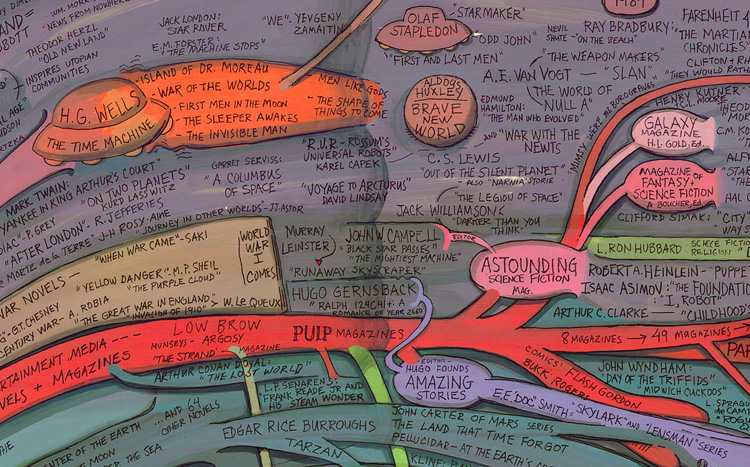 WM. MOR
NEWS FROM NOWHERE
THEODOR HERZL
"OLD NEW LAND"
INSPIRES UTOPIAN
COMMUNITIES
JACK LONDON:
STAR ROVER
E.M. FORSTER:
"THE MACHINE STOPS"
"WE". YEVGENY
ZAMAITZIN
OLAF
STAPLEDON
"STAR MAKER"
"ODD JOHN"
"FIRST AND LAST MEN"
NEVIL
SHUTE - "ON THE BEACH"
RAY BRADBURY:
FARENHEIT
THE MARTIA
CHRONICLES
CLIFTON +
THEY'D RATH
H.G. WELLS
THE TIME MACHINE
ISLAND OF DR. MOREAU
- WAR OF THE WORLDS
- FIRST MEN IN THE MOON
- THE SLEEPER AWAKES
- THE INVISIBLE MAN
MEN LIKE GODS
- THE SHAPE OF
THINGS TO COME
ALDOUS
HUXLEY:
BRAVE
NEW
WORLD
A.E. VAN VOGT
THE WEAPON MAKERS
"SLAN"
THE WORLD OF
NULL A
EDMUND
HAMILTON:
"THE MAN WHO EVOLVED"
AND "WAR WITH THE
NEWTS
"MIMSY WERE THE BOROGROVES
HENRY KUTNER
C.L. MOORE
GALAXY
MAGAZINE
H.L. GOLD, Ed.
MAGAZINE OF
FANTASY +
SCIENCE FICTION
A. BOUCHER, Ed.
CLIFFORD SIMAK:
CITY
WAY
"R.U.R. - ROSSUM'S
UNIVERSAL ROBOTS"
KAREL CAPEK
C.S. LEWIS
"OUT OF THE SILENT PLANET"
ALSO "NARNIA" STORIE
"VOYAGE TO ARCTURUS"
DAVID LINDSAY
JACK WILLIAMSON:
"THE LEGION OF SPACE"
"DARKER THAN YOU
THINK"
MARK TWAIN:
YANKEE IN KING ARTHUR'S COURT"
"ON TWO PLANETS"
KURD LASSWITZ
GARRET SERVISS:
"A COLUMBUS
OF SPACE"
P. GREY
"AFTER LONDON" R. JEFFERIES
MORTE de la TERRE" J-H ROSY-AINE
"JOURNEY IN OTHER WORLDS"-JJ. ASTOR
MURRAY
LEINSTER
"RUNAWAY SKYSCRAPER"
JOHN W. CAMPELL
"BLACK STAR PASSES"
"THE MIGHTIEST MACHINE"
EDITOR
ASTOUNDING
SCIENCE FICTION
MAG.
L. RON HUBBARD
RELIGION
ROBERT A. HEINLEIN - PUPPE
ISAAC ASIMOV: "THE FOUNDATION
"I, ROBOT"
ARTHUR C. CLARKE -
"CHILDHOOD
WAR NOVELS -
"WHEN WAR CAME" - SAKI
"YELLOW DANGER": M.P. SHEIL
"THE PURPLE CLOUD"
G.T. CHESNEY
CENTURY WAR - A. ROBIA
"THE GREAT WAR IN ENGLAND"
"INVASION OF 1910"
W. LE QUEUX
WORLD
WAR
I
COMES
HUGO GERNSBACK
"RALPH 124C41+: A
ROMANCE OF YEAR 2660
ERTAINMENT MEDIA
VELS + MAGAZINES
LOW BROW
MUNSEYS - ARGOSY
"THE STRAND" MAGAZINE
PULP MAGAZINES
8 MAGAZINES → 49 MAGAZINES
ARTHUR CONAN DOYAL:
"THE LOST WORLD"
L.P. SENARENS:
FRANK READE JR AND
HIS STEAM WONDER
EDITOR -
HUGO FOUNDS
AMAZING
STORIES
COMICS: FLASH GORDON
BUCK ROGERS
JOHN WYNDHAM:
"DAY OF THE TRIFFIDS"
"MIDWICH CUCKOOS"
L. SPRAGUE
de CAM
E.E. "DOC" SMITH - "SKYLARK" AND "LENSMAN" SERIES
...AND 64
OTHER NOVELS
CENTER OF THE EARTH
MOON
THE SEA
EDGAR RICE BURROUGHS
TARZAN
JOHN CARTER OF MARS SERIES
THE LAND THAT TIME FORGOT
PELLUCIDAR - AT THE EARTH'S CO